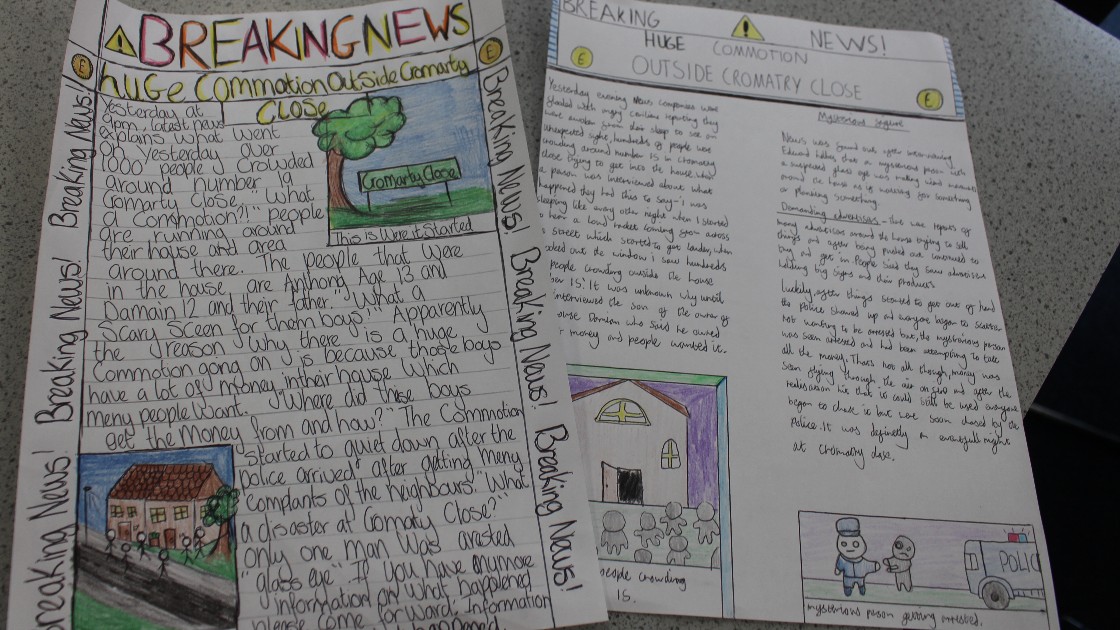 BREAKING NEWS
E
E
HUGE COMMOTION OUTSIDE Cromarty
Close
Yesterday at
9pm, latest news
explains what
on yesterday went
1000 people over
around number crowded
Cromarty Close. "What 19
a Commotion?!" people
are running around
their house and area
around there. The people that were
in the house are Anthony Age 13 and
Damain 12 and their father. "What a
Scary Sceen for them boys!" Apparently
the reason why there is a huge
Commotion gong on is because those boys
have a lot of money in their house which
meny people want. "Where did these boys
get the money from and how?" The Commotion
started to quiet down after the
police arrived after getting meny
complants of the neighbours. "What
a disaster at Cromaty Close?"
only one man was arested
"glass eye" If you have anymore
information on what happened
please come forward. Information
Cromarty Close
This is Were it Started
Breaking News!
Breaking News!
Breaking News!
Breaking News!
Breaking News!
Breaking News!
Breaking News!
BREAKING NEWS!
HUGE COMMOTION
OUTSIDE CROMATRY CLOSE
E
E
Yesterday evening News companies were
flooded with angry civilians reporting they
have awoken from their sleep to see an
unexpected sight, hundreds of people were
crowding around number 15 in Cromatry
close trying to get into the house. When
a person was interviewed about what
happened they had this to say - I was
sleeping like any other night when I started
to hear a loud racket coming from across
street which started to get louder, when
looked out the window i saw hundreds
people crowding outside the house
15. It was unknown why until
interviewed the son of the owner of
house Damian who said he owned
money and people wanted it.
people crowding
15.
Mysterious
News was found out after interviewing
Edward
a suspicious glass eye was making
around the house as if waiting for something
or planning something.
Demanding advertisers - there were reports of
many advertisers around the house trying to sell
things and after being pushed out continued to
try and get in. People said they saw advertisers
holding big signs and their products
Luckily, after things started to get out of hand
the Police showed up and everyone began to scatter
not wanting to be arrested but, the mysterious person
was soon arrested and had been attempting to take
all the money. That's not all though, money was
seen flying through the air and after the
realisation hit that it could still be used everyone
began to chase it but were soon chased by the
Police. It was definetly an eventfull night
at Chromatry close.
POLIC
mysterious person getting arrested.